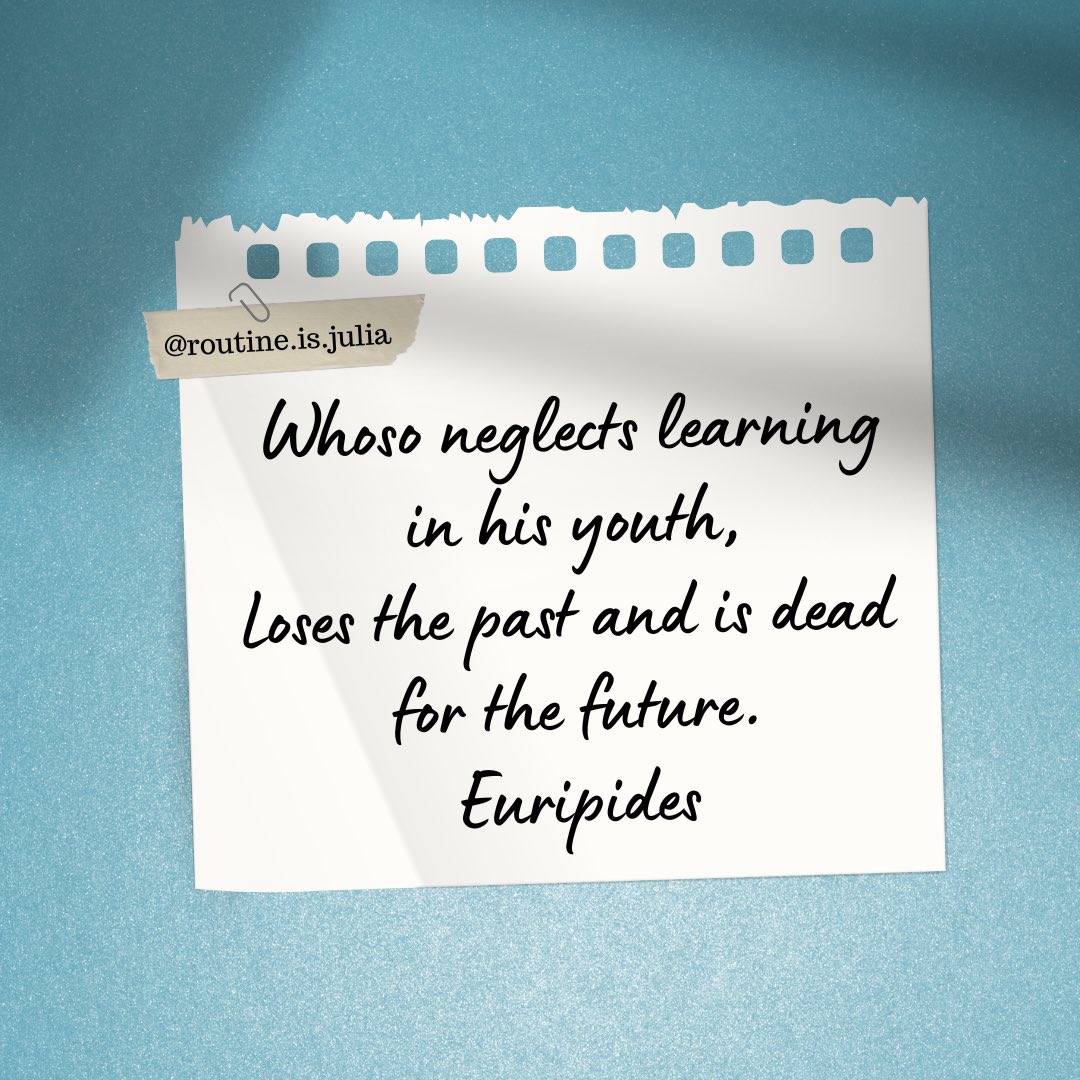 @routine.is.julia
Whoso neglects learning
in his youth,
Loses the past and is dead
for the future.
Euripides